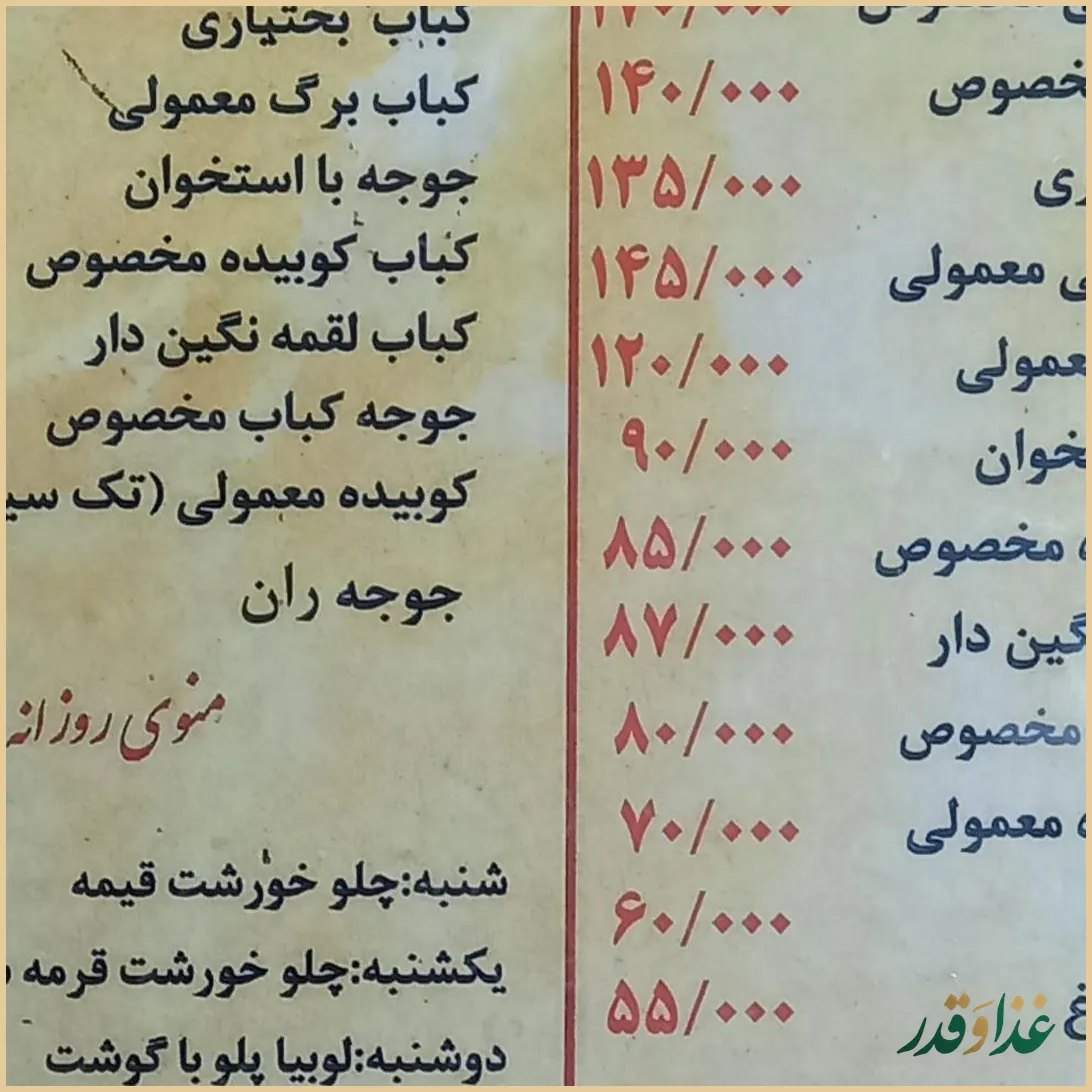 مخصوص ۱۴۰/۰۰۰
ری ۱۳۵/۰۰۰
معمولی ۱۴۵/۰۰۰
معمولی ۱۲۰/۰۰۰
خوان ۹۰/۰۰۰
مخصوص ۸۵/۰۰۰
گین دار ۸۷/۰۰۰
مخصوص ۸۰/۰۰۰
معمولی ۷۰/۰۰۰
۶۰/۰۰۰
غ ۵۵/۰۰۰
غذا و قدر
کباب بختیاری
کباب برگ معمولی
جوجه با استخوان
کباب کوبیده مخصوص
کباب لقمه نگین دار
جوجه کباب مخصوص
کوبیده معمولی (تک سی
جوجه ران
منوی روزانه
شنبه:چلو خورشت قیمه
یکشنبه:چلو خورشت قرمه
دوشنبه:لوبیا پلو با گوشت